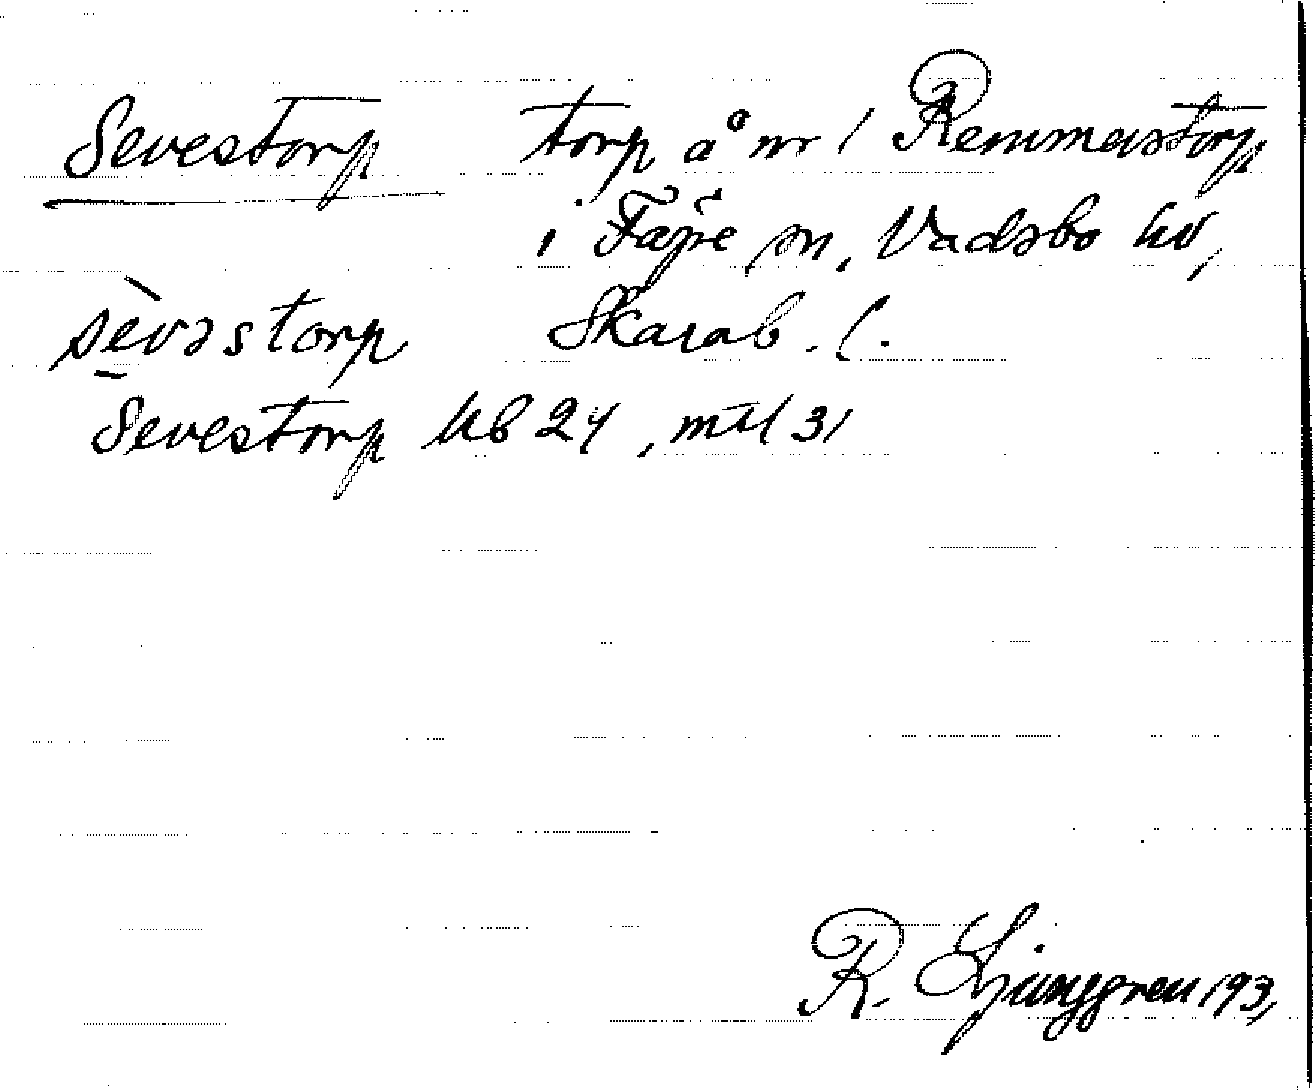 Sevestorp torp å nr 1 Remmerstorp
i Fägre sn, Vadsbo hd,
sèvəstorp Skarab. l.
Sevestorp kb 24, mtl 31
R. Ljunggren 1931